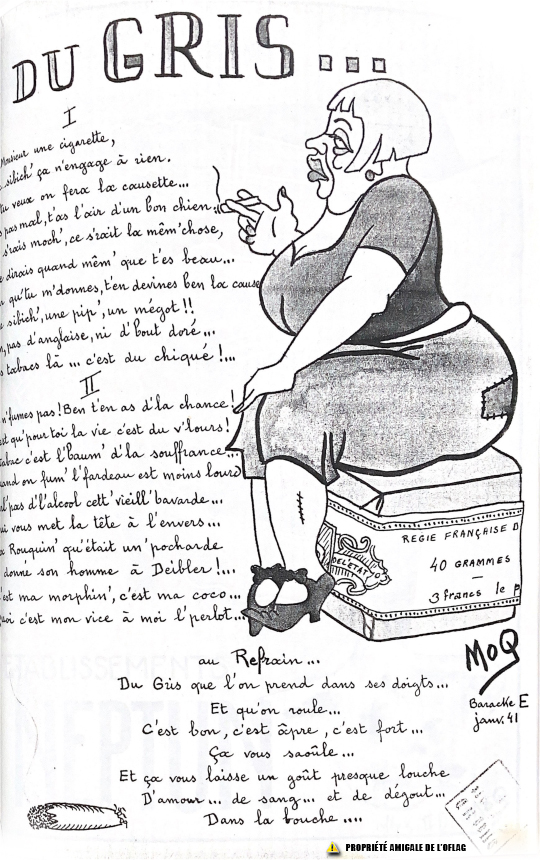 DU GRIS...
I
Monsieur une cigarette,
sibich' ça n'engage à rien.
tu veux on fera la causette...
pas mal, t'as l'air d'un bon chien;
s'rais moch', ce s'rait la mêm' chose,
dirais quand mêm' que t'es beau...
qu'tu m'donnes, t'en devines ben la cause
sibich', une pip', un mégot!!
pas d'anglaise, ni d'bout doré...
tabacs là... c'est du chiqué!...
II
n'fumes pas! Ben t'en as d'la chance!
qu'pour toi la vie c'est du v'lours!
c'est l'baum' d'la souffrance...
on fum' l'fardeau est moins lourd
pas d'l'alcool cett' vieill' bavarde...
vous met la tête à l'envers...
Rouquin' qu'était un' pocharde
donné son homme à Deibler!...
ma morphin', c'est ma coco...
c'est mon vice à moi l'perlot...
REGIE FRANÇAISE D
DE L'ÉTAT
40 GRAMMES
3 francs le p
MOQ
Baracke E
janv. 41
au Refrain...
Du Gris que l'on prend dans ses doigts...
Et qu'on roule...
C'est bon, c'est âpre, c'est fort...
Ça vous saoûle...
Et ça vous laisse un goût presque louche
D'amour... de sang... et de dégout...
Dans la bouche....
PROPRIÉTÉ AMICALE DE L'OFLAG